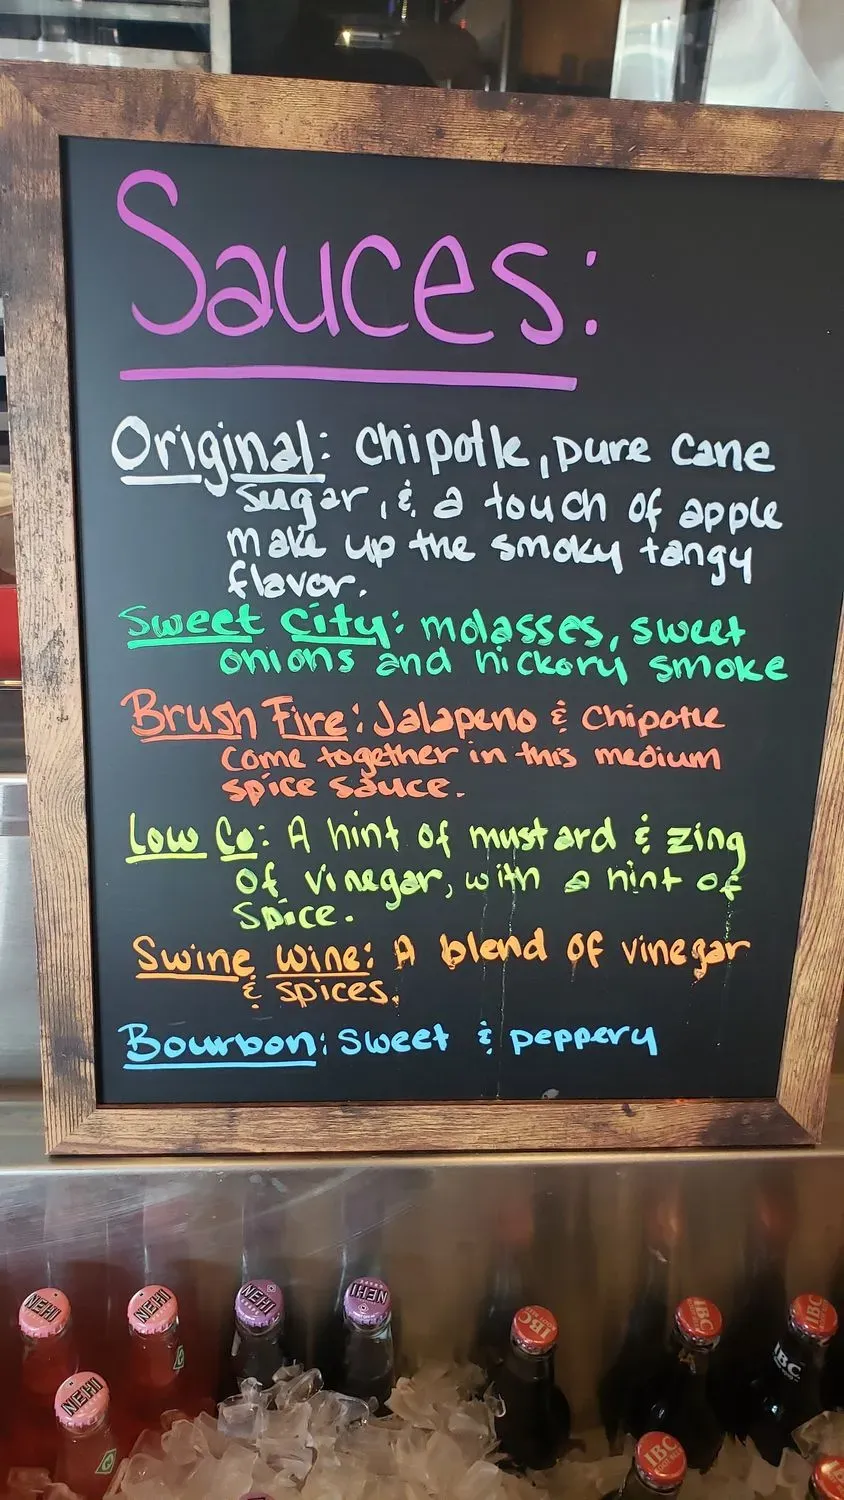 Sauces:
Original: Chipotle, pure cane
sugar, & a touch of apple
make up the smoky tangy
flavor.
Sweet City: molasses, sweet
onions and hickory smoke
Brush Fire: Jalapeno & Chipotle
come together in this medium
spice sauce.
Low Co: A hint of mustard & zing
of vinegar, with a hint of
spice.
Swine Wine: A blend of vinegar
& spices.
Bourbon: sweet & peppery
NEHI NEHI NEHI NEHI IBC IBC IBC
IBC
NEHI IBC